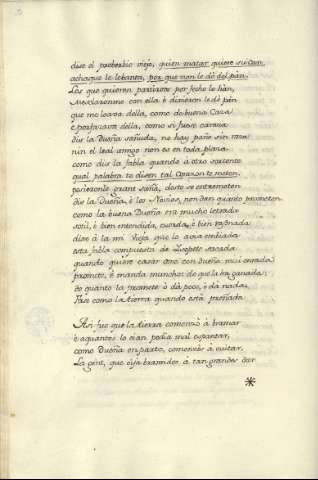 dise el proberbio viejo, quien matar quiere su can
achaque le lebanta, por que non le dé del pan.
Los que quieren partirnos por fecho lo han,
Mesclaronme con ella é dixieron le de plan
que me loava della, como de buena Caza
é porfazava della, como si fuese caraza
dis la Dueña sañuda, no hay paño sin raza
nin el leal amigo non es en toda plaza.
como dis la fabla quando á otro someten
qual palabra te disen tal Corazon te meten.
posieronle grant saña, desto se entremeten
dis la Dueña, é los Novios, non dan quanto prometen
como la buena Dueña era mucho letrada
sotil, é bien entendida, cuerda, é bien razonada
dise á la mi Vieja que le avia embiada
esta fabla compuesta de Isopete sacada
quando quiere casar ome con dueña mui onrrada
promete, é manda mucho: desque la ha ganada
de quanto la prometo ó dá poco, é dá nada,
Fase como la tierra quando está preñada
Asi fue que la tierra comenzó á bramar
é aquantos lo oian podia mal espantar,
como Dueña en parto, comenzós á cuitar.
La gent, que oysa bramidos á tan grandes